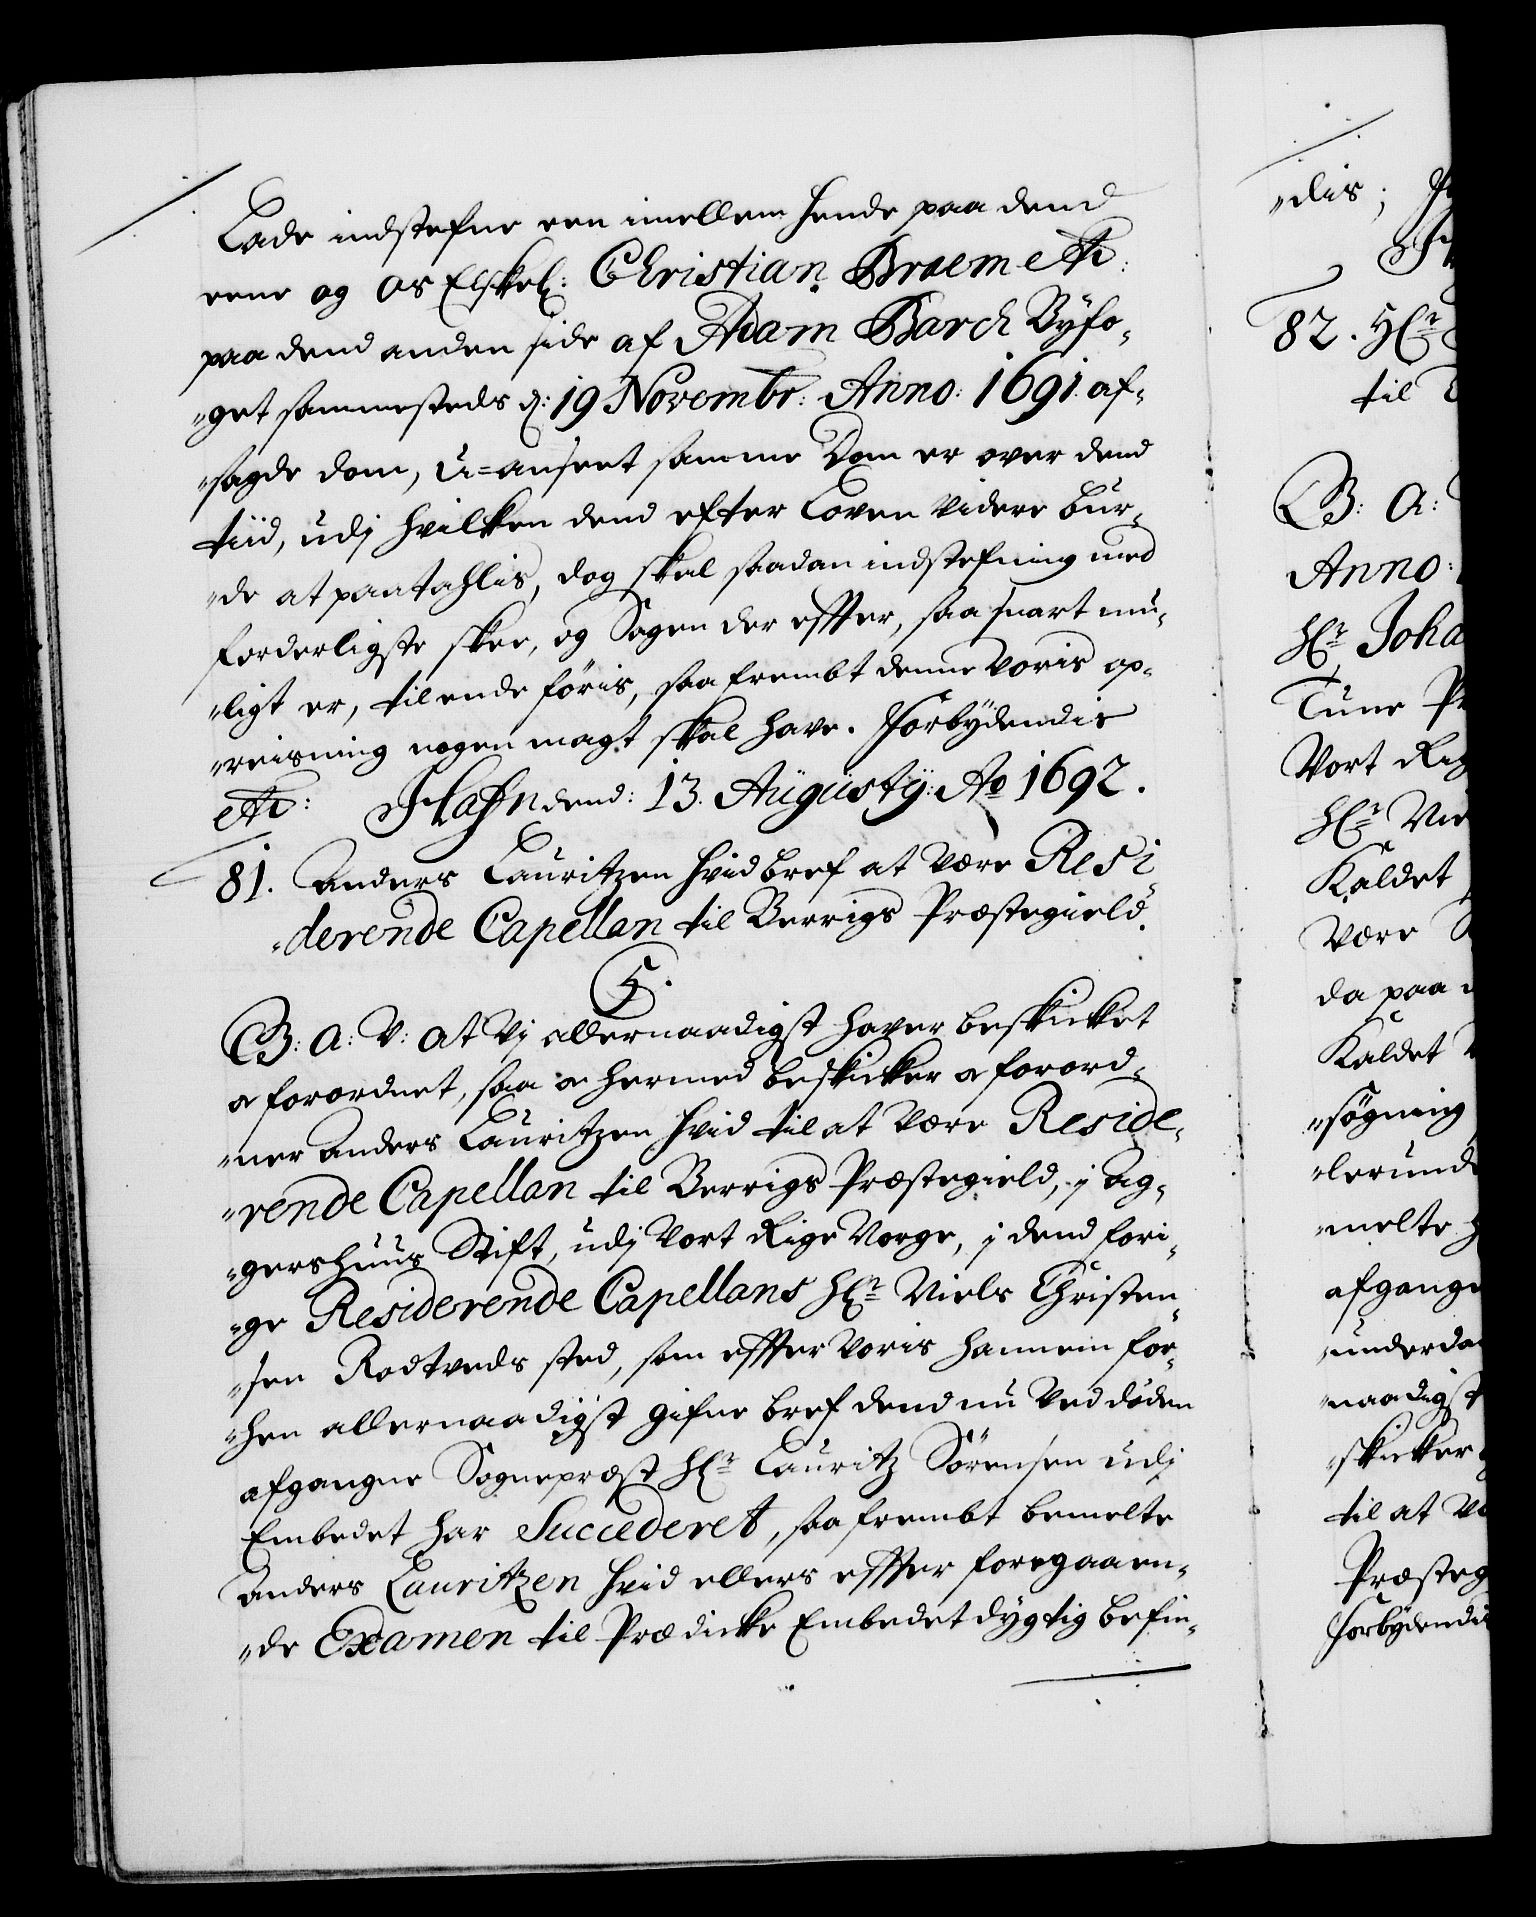 Lade indstefne een imellem hende paa dend
eene og os Elskel: Christian Braem etc:
paa dend anden side af Adam Barch Byfo-
"get sammesteds d: 19 Novembr: Anno: 1691 af-
"sagde dom, u=anseet samme Dom er over dend
tiid, udj hvilken dend efter Loven videre bur-
"de at paatahlis, dog skal saadan indstefning med
forderligste skee, og Sagen der effter, saa snart mu-
"ligt er, til ende föris, saafrembt denne voris op-
"reisning nogen magt skal have. Forbydendis
etc: Hafn dend: 13. Augusty: Ao 1692.
81. Anders Lauritzen Hvid bref at være Resi
"derende Capellan til Berrigs Præstegield.
5.
G: A: V: at Vj allernaadigst hafver beskicket
a forordnet, saa a hermed beskicker a forord-
"ner Anders Lauritzen Hvid til at være Reside-
"rende Capellan til Berrigs Præstegield, j Ag-
"gershuus Stift, udj vort Rige Norge, j dend fori-
"ge Residerende Capellans Hr. Niels Christen-
"sen Rodtveds sted, som effter voris hannem for-
"hen allernaadigst gifne bref dend nu ved döden
afgangne Sognepræst Hr. Lauritz Sörensen udj
Embedet har Succederet, saafrembt bemelte
Anders Lauritzen Hvid ellers effter foregaaen-
"de Examen til Prædicke Embedet dygtig befin-
"dis;
82. Hr.
til
G: A:
Anno:
Hr. Joha
Tune Pr
Vort Rig
Hr. Nie
Kaldet
være
da paa
Kaldet
"søgning
"lerund
"melte
afgange
"underda
"naadigst
"skicker
til at væ
Præsteg
Forbydendis